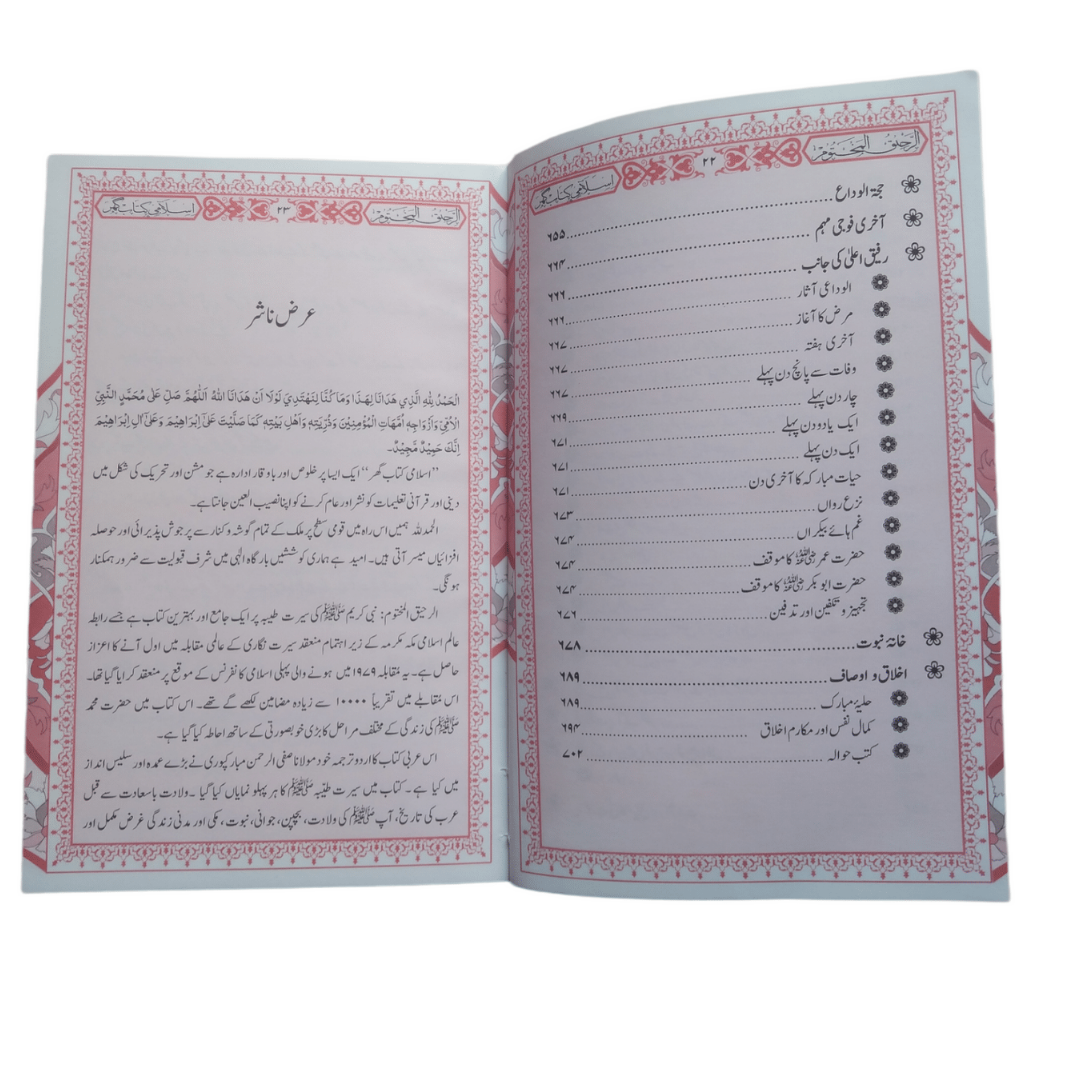 الرحیق المختوم ۲۲ اسلامی کتاب گھر
حجۃ الوداع ..... ۶۵۵
آخری فوجی مہم ..... ۶۶۴
رفیق اعلیٰ کی جانب ..... ۶۶۶
الوداعی آثار ..... ۶۶۶
مرض کا آغاز ..... ۶۶۷
آخری ہفتہ ..... ۶۶۷
وفات سے پانچ دن پہلے ..... ۶۶۷
چار دن پہلے ..... ۶۶۹
ایک یا دو دن پہلے ..... ۶۷۱
ایک دن پہلے ..... ۶۷۱
حیات مبارکہ کا آخری دن ..... ۶۷۱
نزع رواں ..... ۶۷۳
غم ہائے بیکراں ..... ۶۷۴
حضرت عمر رضی اللہ عنہ کا موقف ..... ۶۷۴
حضرت ابو بکر رضی اللہ عنہ کا موقف ..... ۶۷۴
تجہیز و تکفین اور تدفین ..... ۶۷۶
خانۂ نبوت ..... ۶۷۸
اخلاق و اوصاف ..... ۶۸۹
حلیۂ مبارک ..... ۶۸۹
کمال نفس اور مکارم اخلاق ..... ۶۹۴
کتب حوالہ ..... ۷۰۲
الرحیق المختوم ۲۳ اسلامی کتاب گھر
عرض ناشر
اَلْحَمْدُ لِلّٰهِ الَّذِي هَدَانَا لِهٰذَا وَمَا كُنَّا لِنَهْتَدِيَ لَوْلَا اَنْ هَدَانَا اللّٰهُ اَللّٰهُمَّ صَلِّ عَلٰى مُحَمَّدٍ النَّبِيِّ
الْاُمِّيِّ وَاَزْوَاجِهٖ اُمَّهَاتِ الْمُؤْمِنِيْنَ وَذُرِّيَّتِهٖ وَاَهْلِ بَيْتِهٖ كَمَا صَلَّيْتَ عَلٰى اِبْرَاهِيْمَ وَعَلٰى اٰلِ اِبْرَاهِيْمَ
اِنَّكَ حَمِيْدٌ مَّجِيْدٌ۔
”اسلامی کتاب گھر“ ایک ایسا پر خلوص اور باوقار ادارہ ہے جو مشن اور تحریک کی شکل میں
دینی اور قرآنی تعلیمات کو نشر اور عام کرنے کو اپنا نصیب العین جانتا ہے۔
الحمدللہ ہمیں اس راہ میں قومی سطح پر ملک کے تمام گوشہ و کنار سے پر جوش پذیرائی اور حوصلہ
افزائیاں میسر آتی ہیں۔ امید ہے ہماری کوششیں بارگاہ الٰہی میں شرف قبولیت سے ضرور ہمکنار
ہونگی۔
الرحیق المختوم: نبی کریم ﷺ کی سیرت طیبہ پر ایک جامع اور بہترین کتاب ہے جسے رابطہ
عالم اسلامی مکہ مکرمہ کے زیر اہتمام منعقد سیرت نگاری کے عالمی مقابلہ میں اول آنے کا اعزاز
حاصل ہے۔ یہ مقابلہ ۱۹۷۹ میں ہونے والی پہلی اسلامی کانفرنس کے موقع پر منعقد کرایا گیا تھا۔
اس مقابلے میں تقریباً ۱۰۰۰۰ سے زیادہ مضامین لکھے گے تھے۔ اس کتاب میں حضرت محمد
ﷺ کی زندگی کے مختلف مراحل کا بڑی خوبصورتی کے ساتھ احاطہ کیا گیا ہے۔
اس عربی کتاب کا اردو ترجمہ خود مولانا صفی الرحمن مبارکپوری نے بڑے عمدہ اور سلیس انداز
میں کیا ہے۔ کتاب میں سیرت طیبہ ﷺ کا ہر پہلو نمایاں کیا گیا۔ ولادت باسعادت سے قبل
عرب کی تاریخ، آپ ﷺ کی ولادت، بچپن، جوانی، نبوت، مکی اور مدنی زندگی غرض مکمل اور